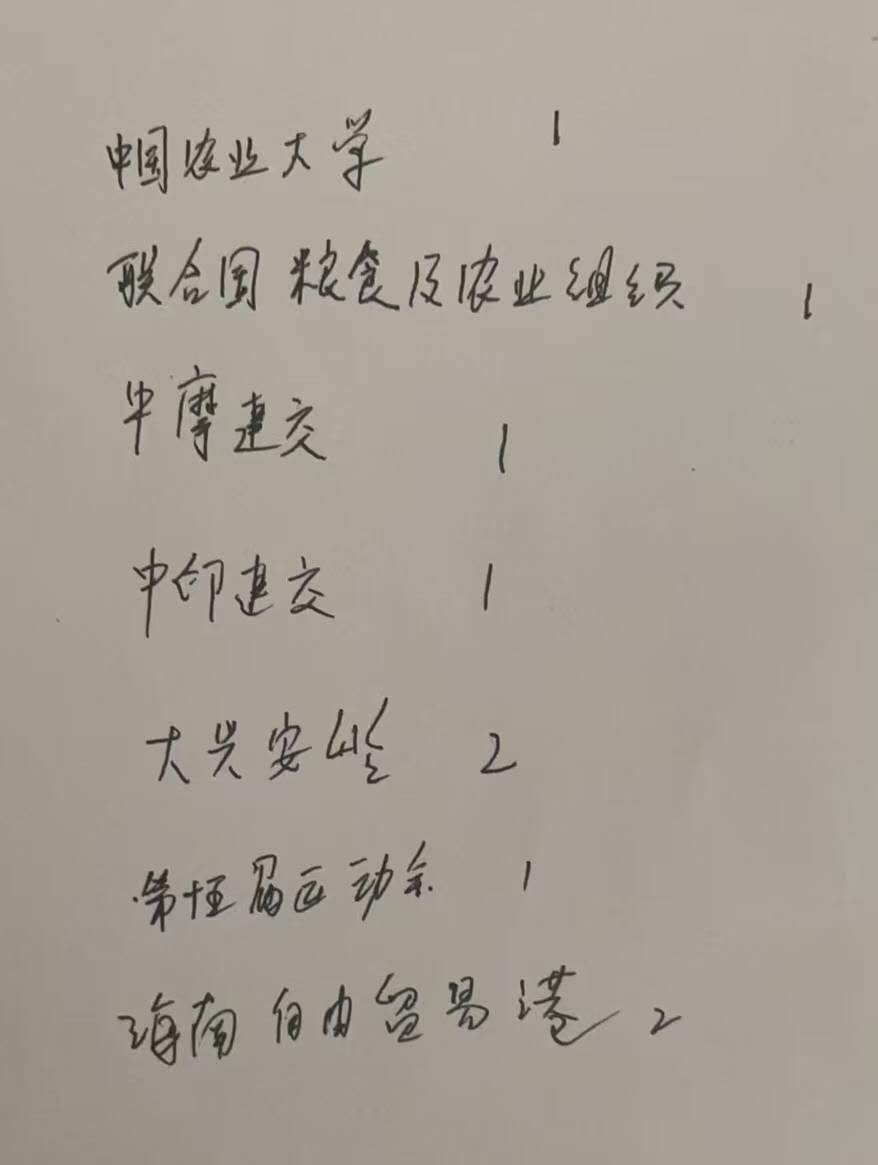 中国农业大学 1
联合国粮食及农业组织 1
中摩建交 1
中印建交 1
大兴安岭 2
第十五届运动会 1
海南自由贸易港 2